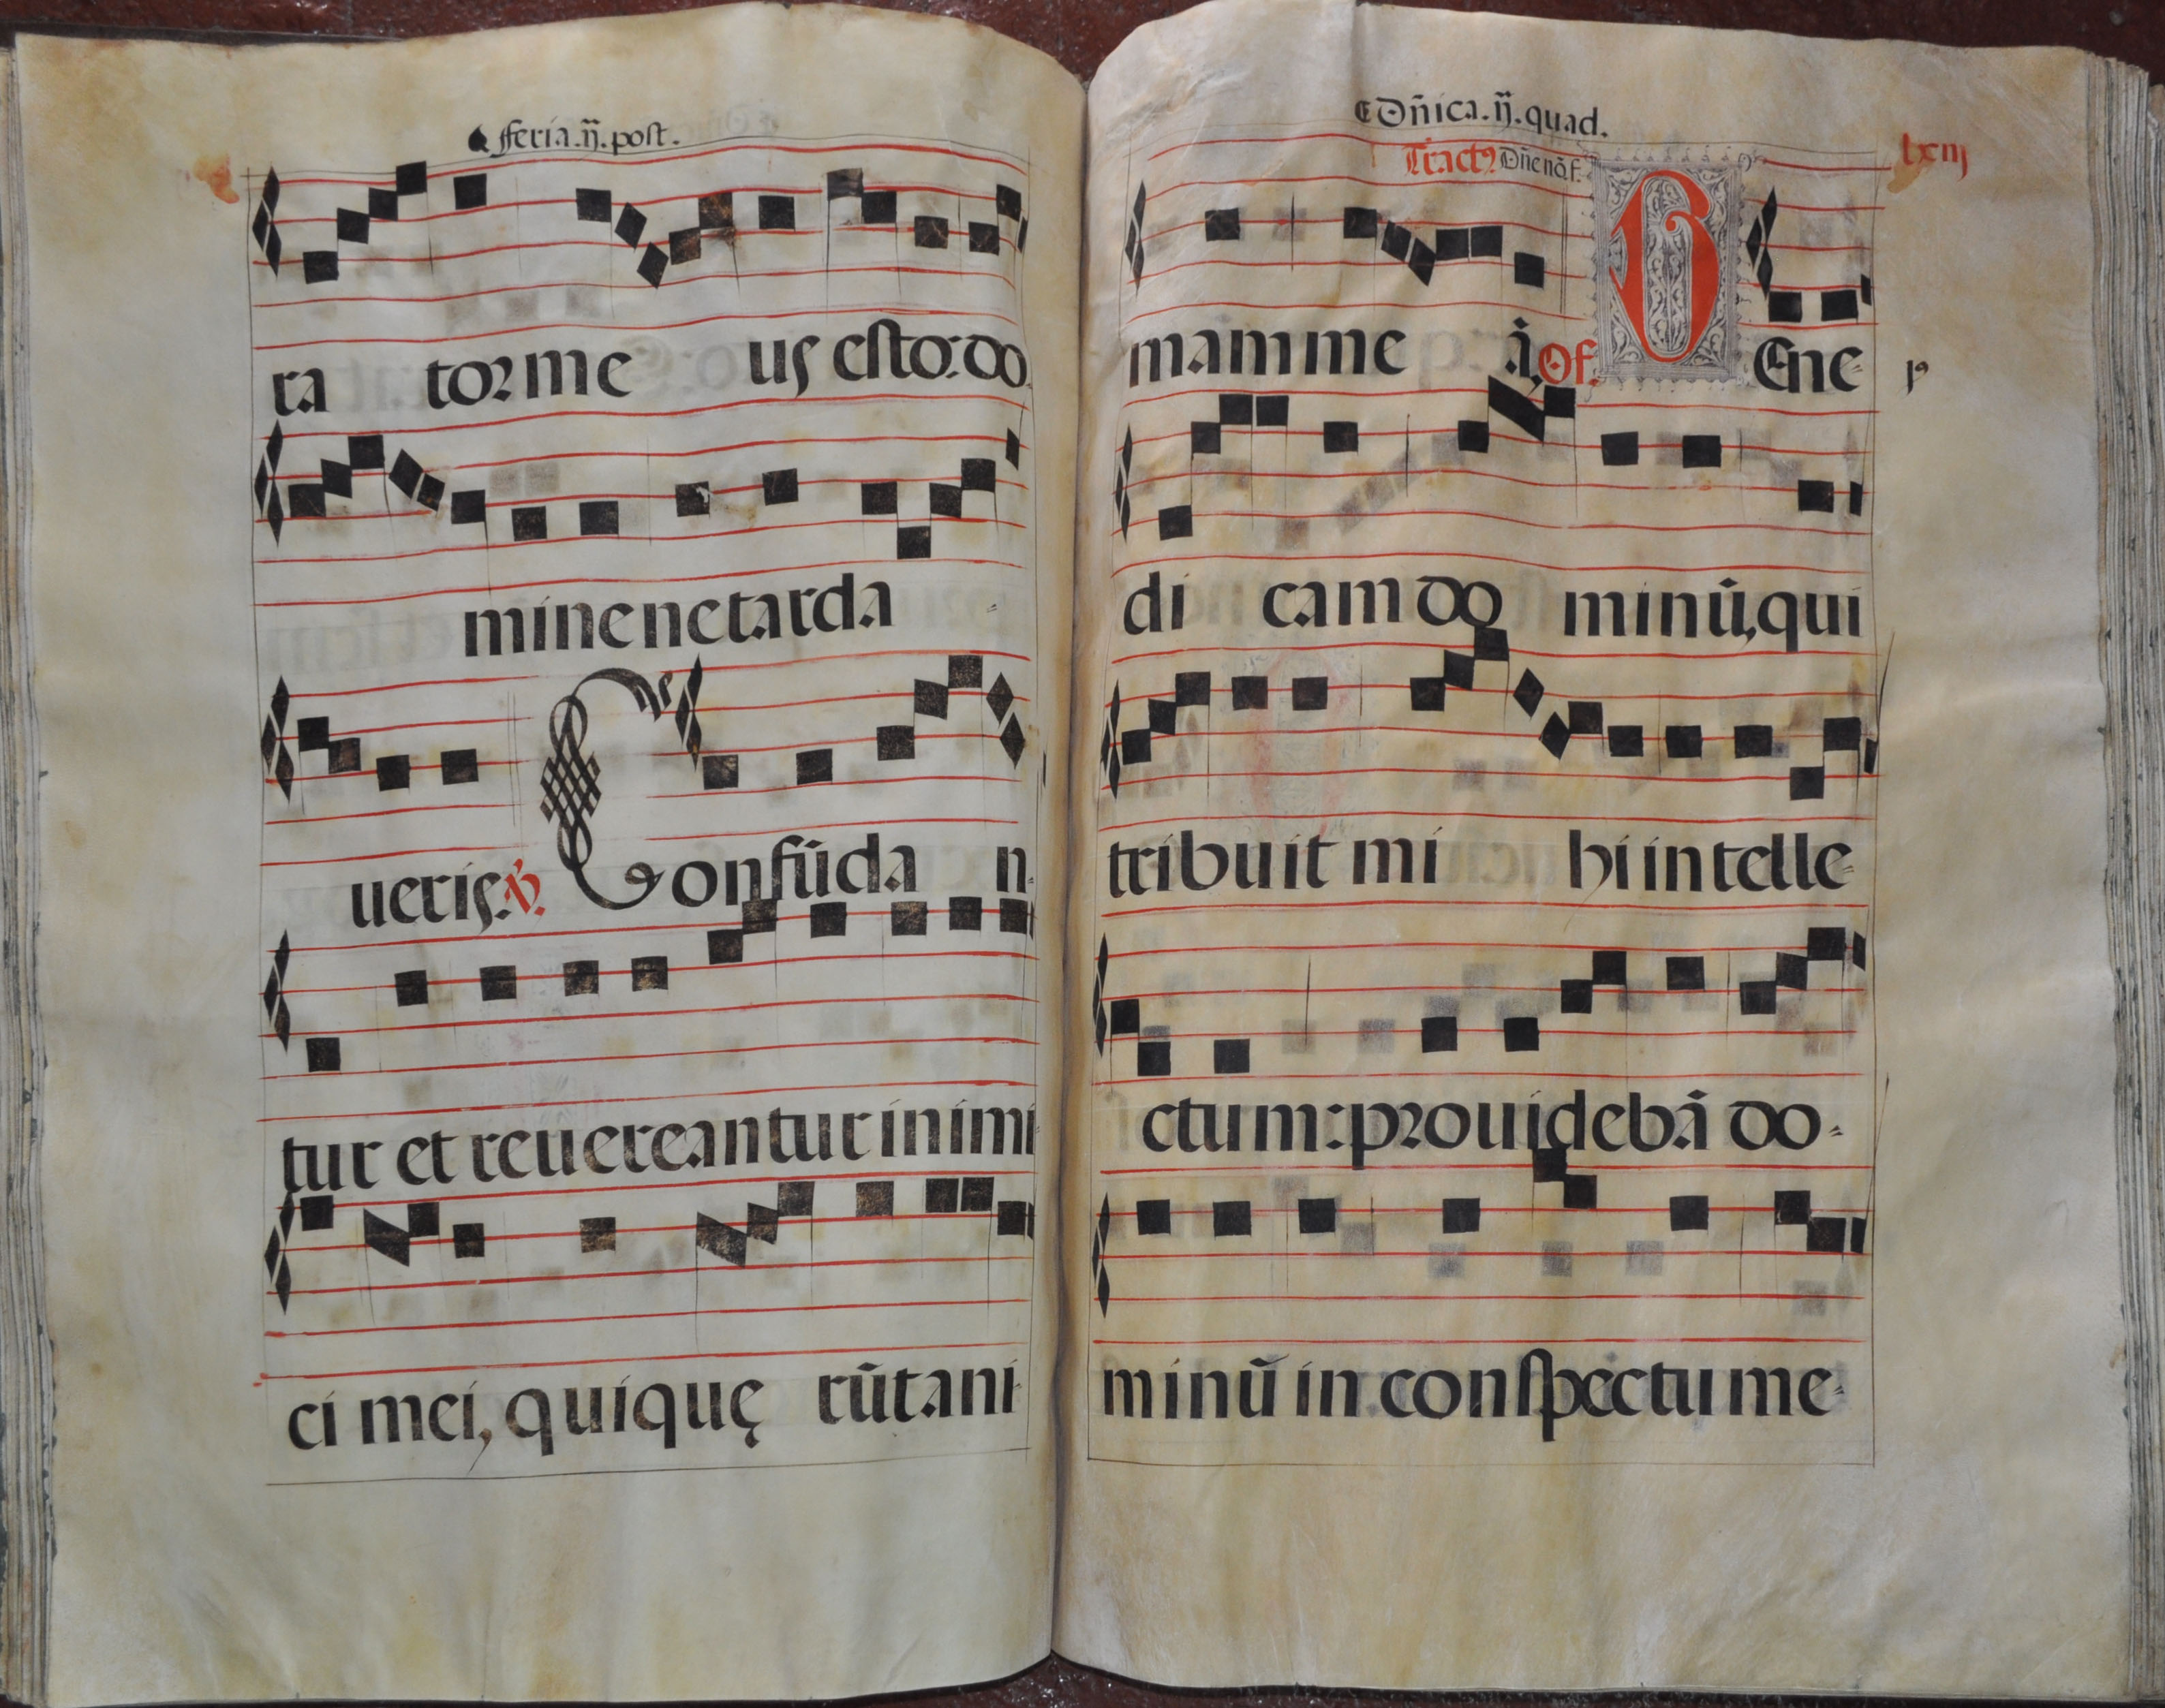 fferia.ij.post.
ra tor me us esto: do
mine ne tarda
ueris. ꝟ. Confūda n-
tur et reuereantur inimi
ci mei, qui quę rūt ani-
Dñica.ij.quad.
Tractꝰ Dñe nō f.
lxiij
mam me ā Of. BEne-
di cam do minū, qui
tribuit mi hi intelle-
ctum: prouidebā do-
minū in conspectu me-